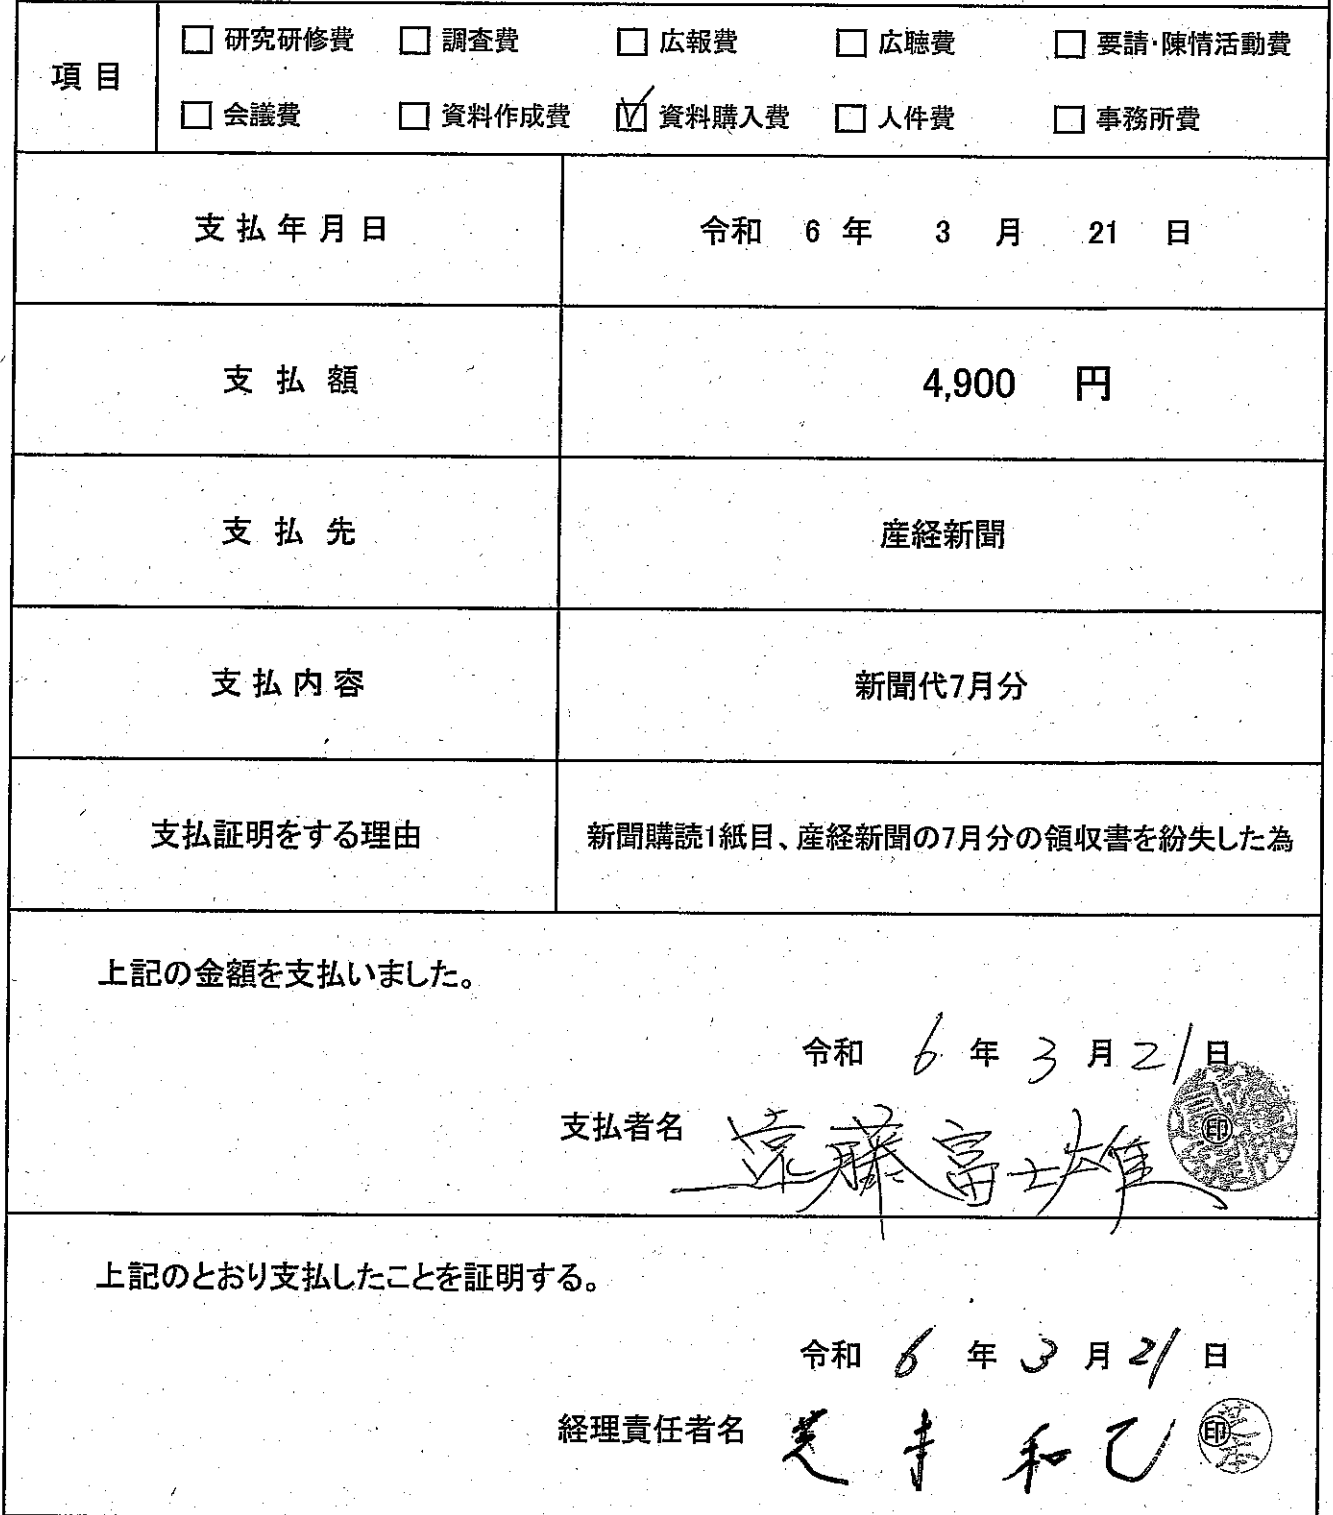 項目
□ 研究研修費 □ 調査費 □ 広報費 □ 広聴費 □ 要請・陳情活動費
□ 会議費 □ 資料作成費 ☑ 資料購入費 □ 人件費 □ 事務所費
支払年月日 令和 6 年 3 月 21 日
支払額 4,900 円
支払先 産経新聞
支払内容 新聞代7月分
支払証明をする理由 新聞購読1紙目、産経新聞の7月分の領収書を紛失した為
上記の金額を支払いました。
令和 6 年 3 月 21 日
支払者名 遠藤富士雄 印
上記のとおり支払したことを証明する。
令和 6 年 3 月 21 日
経理責任者名 芝本 和己 印